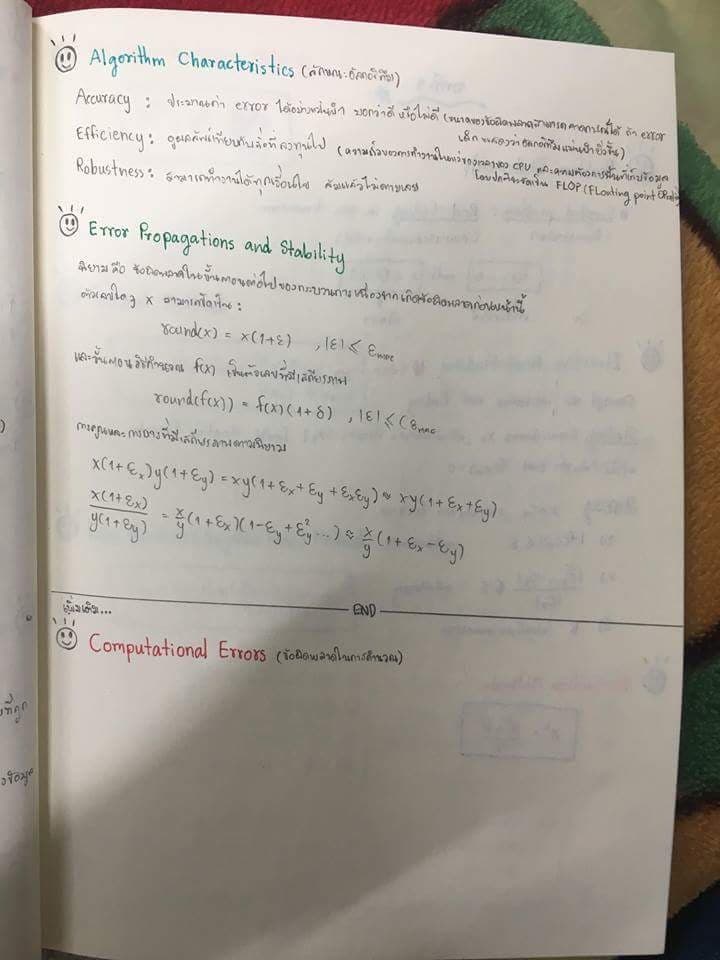 Algorithm Characteristics (ลักษณะอัลกอริทึม)
Accuracy : ประมาณค่า error ได้อย่างแม่นยำ บอกว่าดี หรือไม่ดี (ขนาดของข้อผิดพลาดสามารถคาดการณ์ได้ ถ้า error
เล็ก แสดงว่าอัลกอริทึมแม่นยำยิ่งขึ้น)
Efficiency : ดูผลลัพธ์เทียบกับสิ่งที่ลงทุนไป (ความเร็วของการทำงานในแง่ของเวลาของ CPU และความต้องการพื้นที่เก็บข้อมูล
โดยปกติจะวัดเป็น FLOP (FLoating point OPeration)
Robustness : สามารถทำงานได้ทุกเงื่อนไข ล้มแล้วไม่ตายเลย
Error Propagations and Stability
นิยาม คือ ข้อผิดพลาดในขั้นตอนต่อไปของกระบวนการ เนื่องจากเกิดข้อผิดพลาดก่อนหน้านี้
ตัวเลขใดๆ x สามารถปัดเป็น :
round(x) = x(1+ε) , |ε| ⩽ ε_mac
และขั้นตอนวิธีคำนวณ f(x) เป็นตัวเลขที่มีเสถียรภาพ
round(f(x)) = f(x)(1+δ) , |ε| ⩽ Cε_mac
การคูณและการหารที่มีเสถียรภาพตามนิยาม
x(1+ε_x)y(1+ε_y) = xy(1+ε_x+ε_y+ε_xε_y) ≈ xy(1+ε_x+ε_y)
x(1+ε_x)/y(1+ε_y) = x/y(1+ε_x)(1-ε_y+ε_y²...) ≈ x/y(1+ε_x-ε_y)
END
เพิ่มเติม...
Computational Errors (ข้อผิดพลาดในการคำนวณ)
ที่ถูก
ข้อมูล